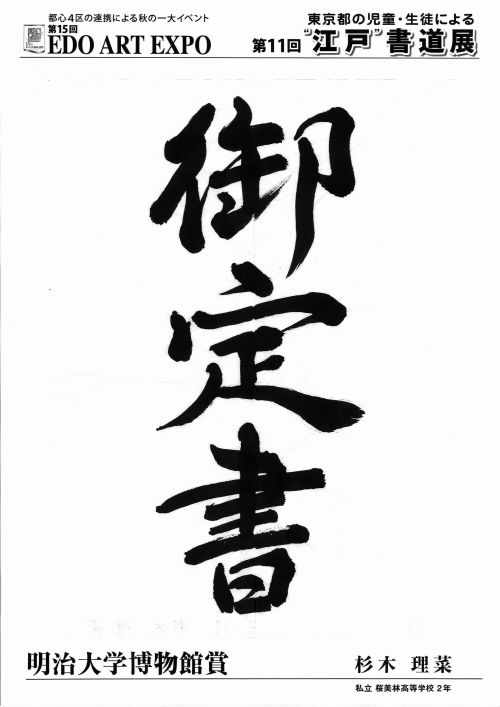 都心4区の連携による秋の一大イベント
第15回
EDO ART EXPO
東京都の児童・生徒による
第11回 "江戸"書道展
御定書
明治大学博物館賞
杉木 理菜
私立 桜美林高等学校 2年